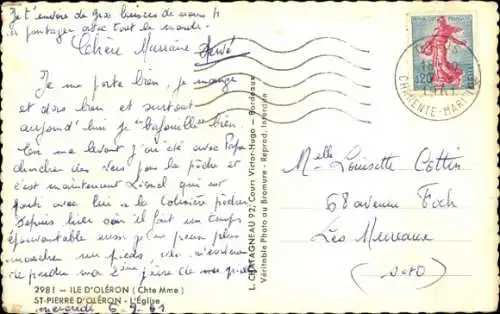 Je t'envoie de gros baisers de nous
à partager avec tout le monde.
Hervé
Chère Marraine
Je me porte bien, je mange
et dors bien et surtout
aujourd'hui je "bafouille" bien
En me levant j'ai été avec Papa
chercher des vers pour la pêche et
c'est maintenant Lionel qui est
parti avec lui à la Cotinière pêcher
depuis hier soir il fait un temps
épouvantable aussi je ne peux plus
marcher nu pieds, vient
de perdre ma 2ème
2981 - ILE D'OLÉRON (Chte Mme)
ST-PIERRE D'OLÉRON - L'Église
mercredi 6-9-61
L. CHATAGNEAU 92, Cours Victor-Hugo - Bordeaux
Véritable Photo au Bromure - Reprod. Interdite
18
CHARENTE-MARITIME
0,20
Melle Louisette Cottin
68 avenue Foch
Les Mureaux
(S&O)